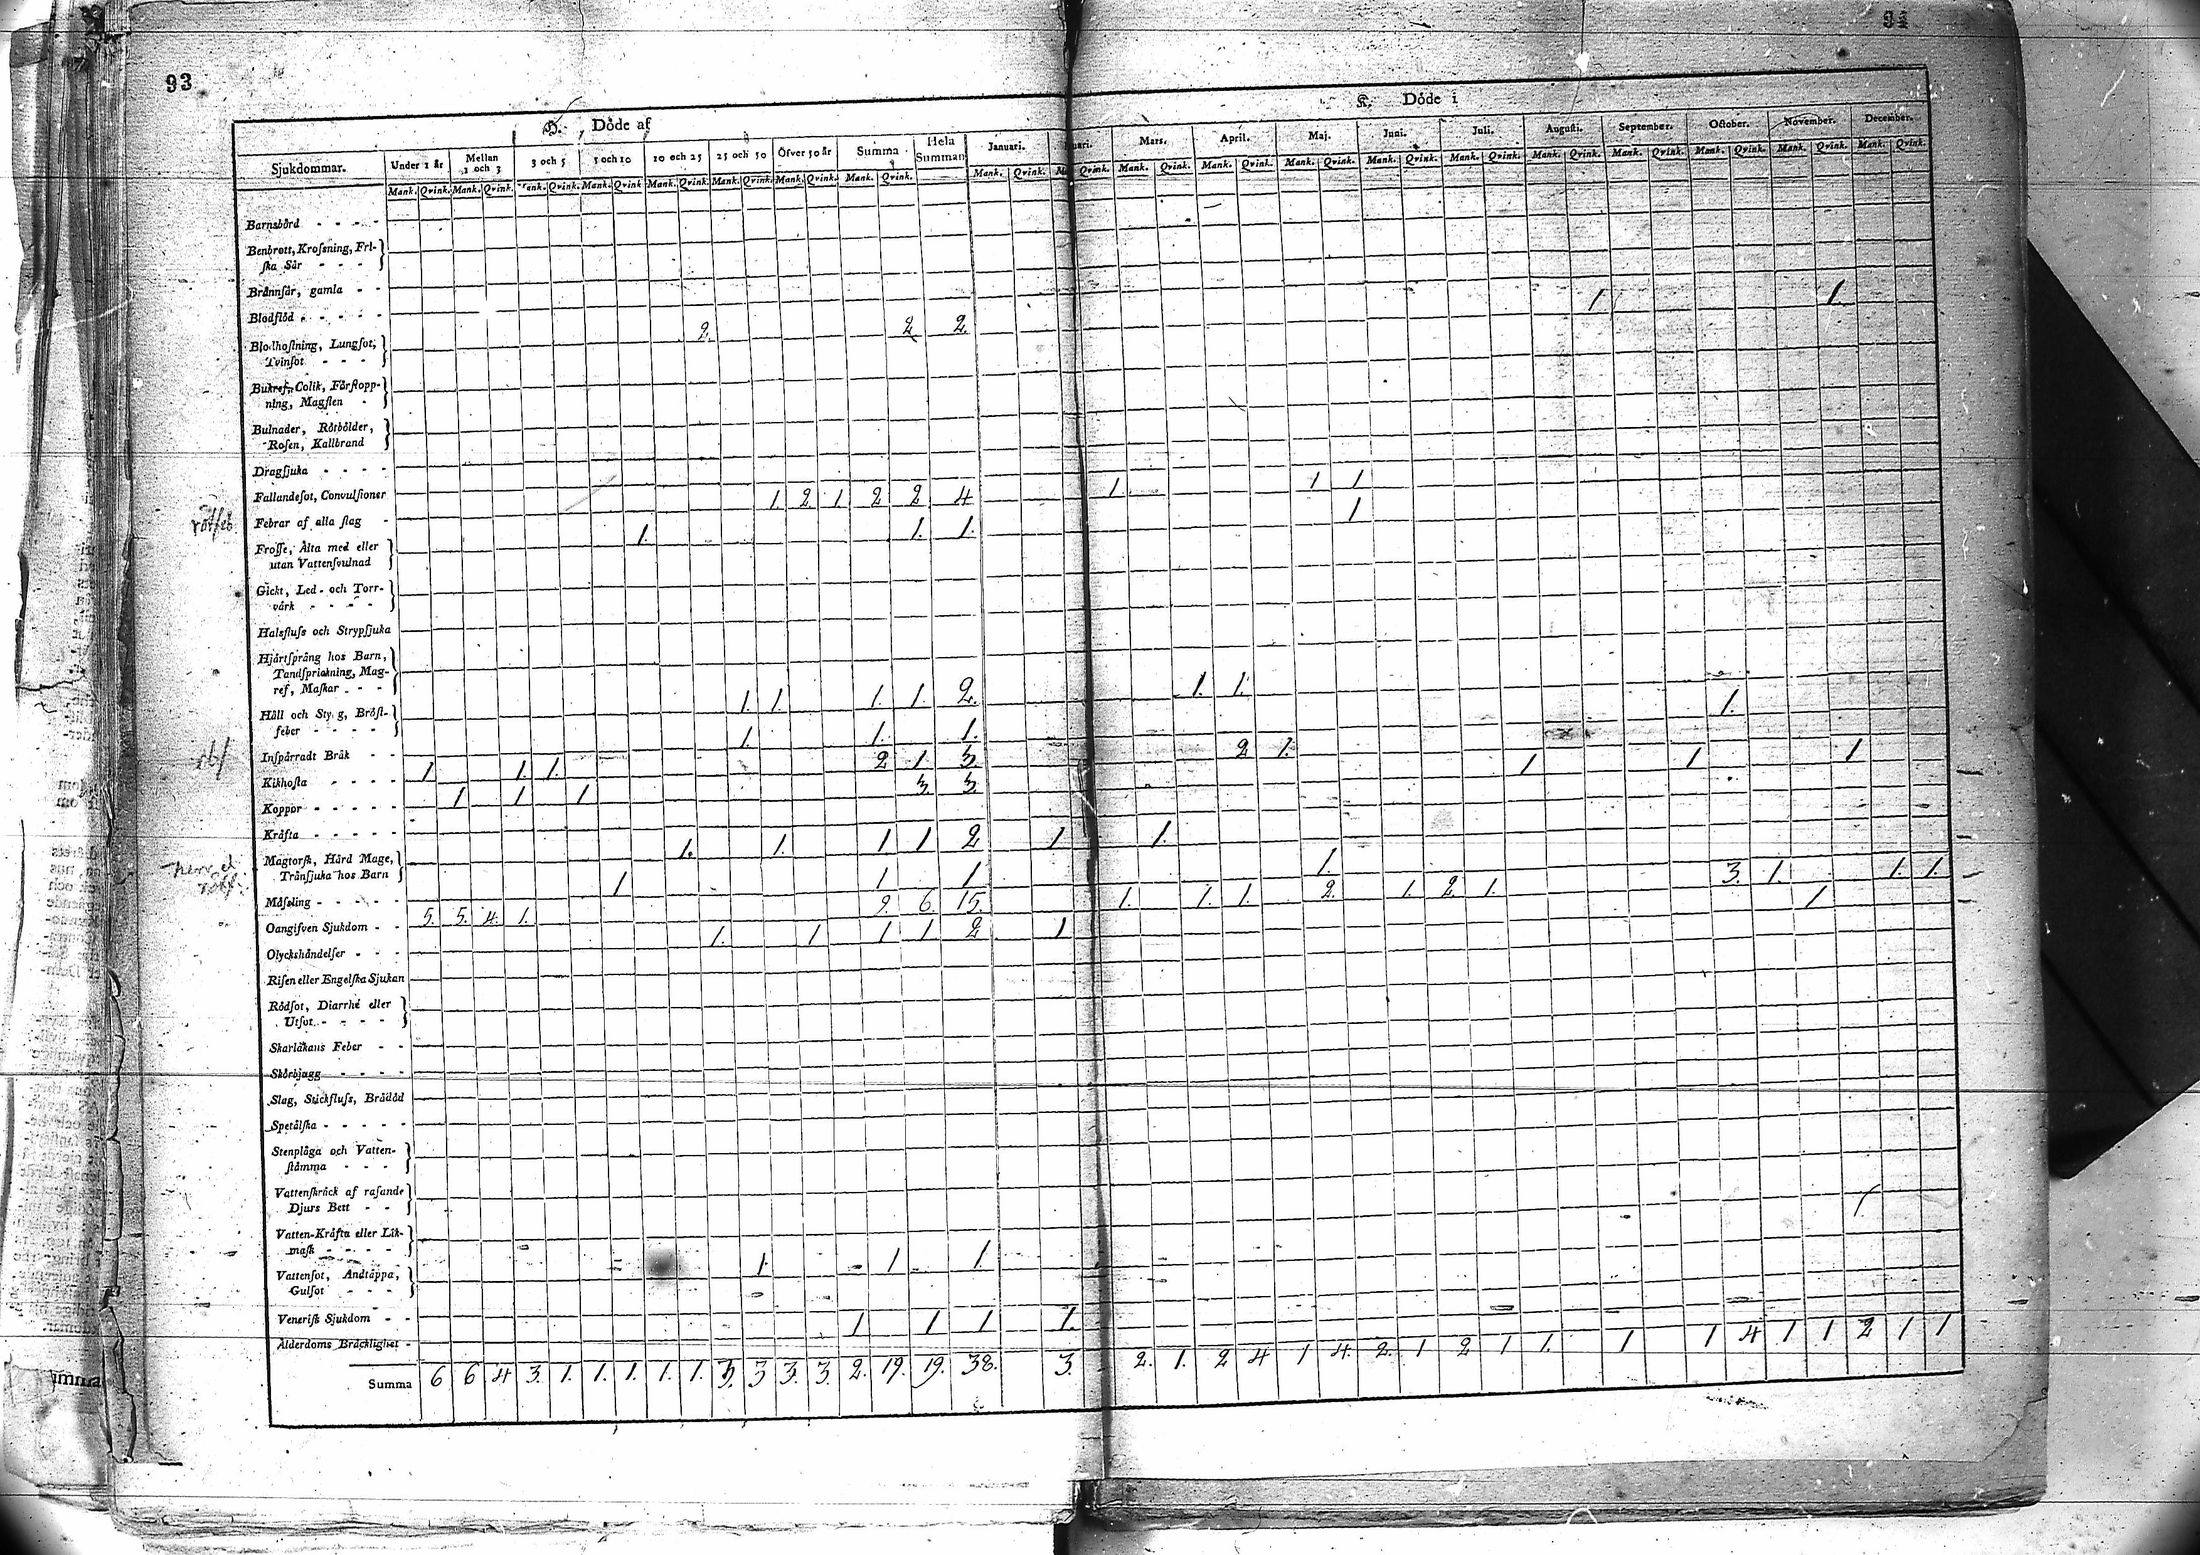 93
H. Döde af
K. Döde i
Sjukdommar. Under 1 år Mellan 1 och 3 3 och 5 5 och 10 10 och 25 25 och 50 Öfver 50 år Summa Hela Summan Januari. Mars. April. Maj. Juni. Juli. Augusti. September. October. November. December.
Mank. Qvink. Mank. Qvink. Mank. Qvink. Mank. Qvink. Mank. Qvink. Mank. Qvink. Mank. Qvink. Mank. Qvink. Mank. Qvink. Qvink. Mank. Qvink. Mank. Qvink. Mank. Qvink. Mank. Qvink. Mank. Qvink. Mank. Qvink. Mank. Qvink. Mank. Qvink. Mank. Qvink. Mank. Qvink.
Barnsbörd - - - -
Benbrott, Krofsning, Fri-
ſka Sår - - -
Brännſår, gamla - -
Blodflöd - - - - - 1 1.
2. 2 2.
Blodhoſtning, Lungſot,
Tvinſot - - -
Bukref, Colik, Förſtopp-
ning, Magſten -
Bulnader, Rötbölder,
Roſen, Kallbrand
Dragſjuka - - - -
Fallandeſot, Convulſioner 1. 2 1 2 2 4 1 1 1
rötfeb.
Febrar af alla ſlag - 1. 1. 1. 1
Froſſe, Älta med eller
utan Vattenſvulnad
Gickt, Led- och Torr-
värk - - - -
Halsfluſs och Strypſjuka
Hjärtſprång hos Barn,
Tandſprickning, Mag-
ref, Maſkar - - - 1. 1. 1. 1. 2. 1. 1.
Håll och Styng, Bröſt-
feber - - - - - 1. 1. 1. 1.
Inſpärradt Bråk - - 1 1. 1. 2 1. 3. 2 1. 1 1 1
Kikhoſta - - - - 1 1 1 3. 3
Koppor - - - - -
Kräfta - - - - - 1. 1. 1 1 2 1 1.
Magtorſk, Hård Mage,
Trånſjuka hos Barn 1 1 1 1. 3. 1. 1. 1.
Mäſsling - - - - - 5. 5. 4. 1. 9. 6. 15. 1. 1. 1. 2. 1. 2. 1. 1
Oangifven Sjukdom - - 1. 1 1 1 2 1
Olyckshändelſer - - -
Riſen eller Engelſka Sjukan
Rödſot, Diarrhé eller
Utſot - - - -
Skarlakans Feber - -
Skörbjugg - - - -
Slag, Stickfluſs, Brådöd
Spetälſka - - - - -
Stenplåga och Vatten-
ſtämma - - -
Vattenſkräck af raſande
Djurs Bett - -
Vatten-Kräfta eller Lik-
maſk - - - - 1. 1 1.
Vattenſot, Andtäppa,
Gulſot - - -
Veneriſk Sjukdom - - 1 1 1 1.
Ålderdoms Bräcklighet -
Summa 6 6 4 3. 1. 1. 1. 1. 1. 3. 3 3. 3. 2. 19. 19. 38. 3. 2. 1. 2 4 1 4. 2. 1 2 1 1. 1 1 4 1 1 2 1 1